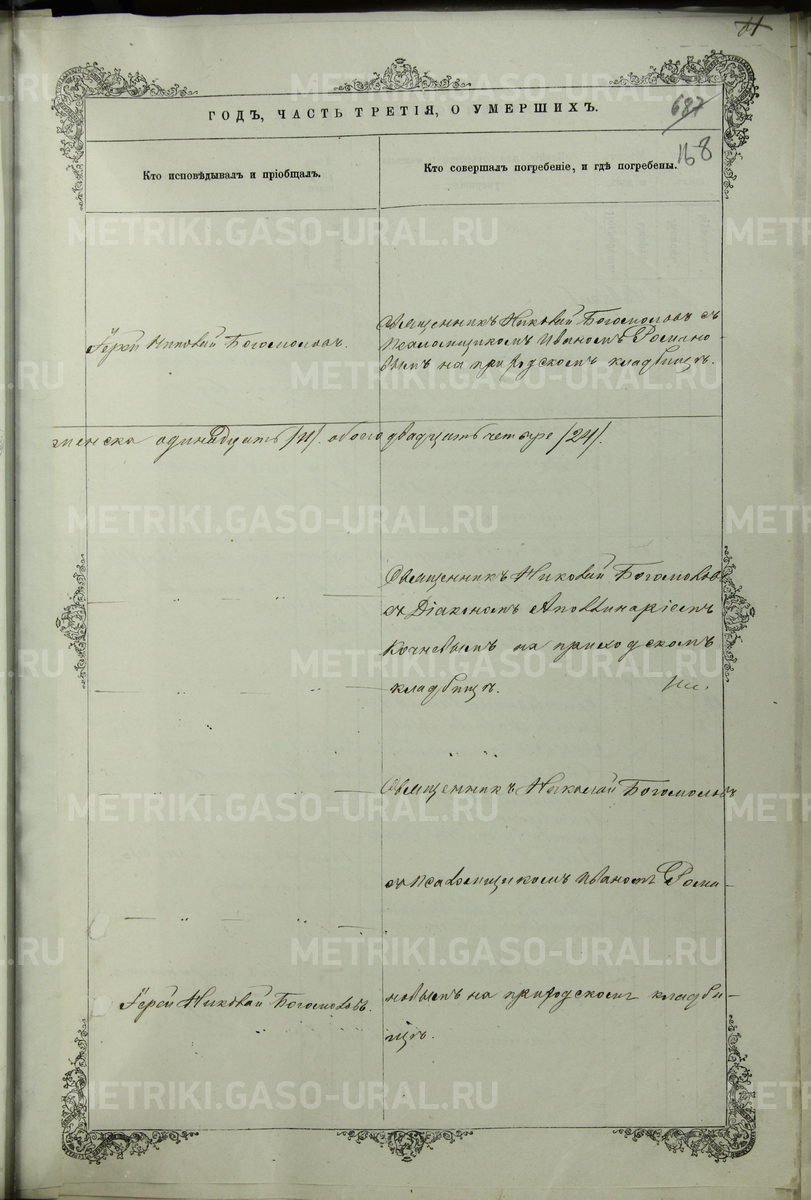 687
168
ГОДЪ, ЧАСТЬ ТРЕТІЯ, О УМЕРШИХЪ.
Кто исповѣдывалъ и пріобщалъ.
Кто совершалъ погребеніе, и гдѣ погребены.
Іерей Николай Богомоловъ.
Священникъ Николай Богомоловъ съ
Псаломщикомъ Иваномъ Романо-
вымъ на приходскомъ кладбищѣ.
женска одинадцать /11/. обоего двадцать четыре /24/.
Священникъ Николай Богомоловъ
съ Діакономъ Аполлинаріемъ
Кочневымъ на приходскомъ
кладбищѣ.
Священникъ Николай Богомоловъ
съ Псаломщикомъ Иваномъ Рома-
Іерей Николай Богомоловъ.
новымъ на приходскомъ кладби-
щѣ.
METRIKI.GASO-URAL.RU